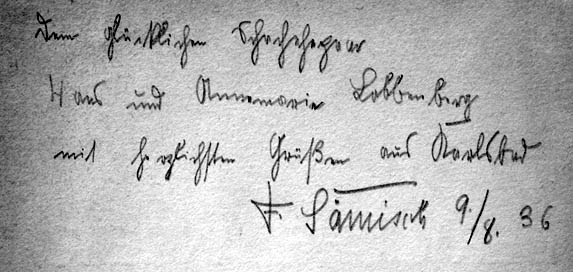 Dem glücklichen Schachehepaar
Hans und Annemarie Lobbenberg
mit herzlichsten Grüßen aus Karlsbad
F. Sämisch 9./8. 36